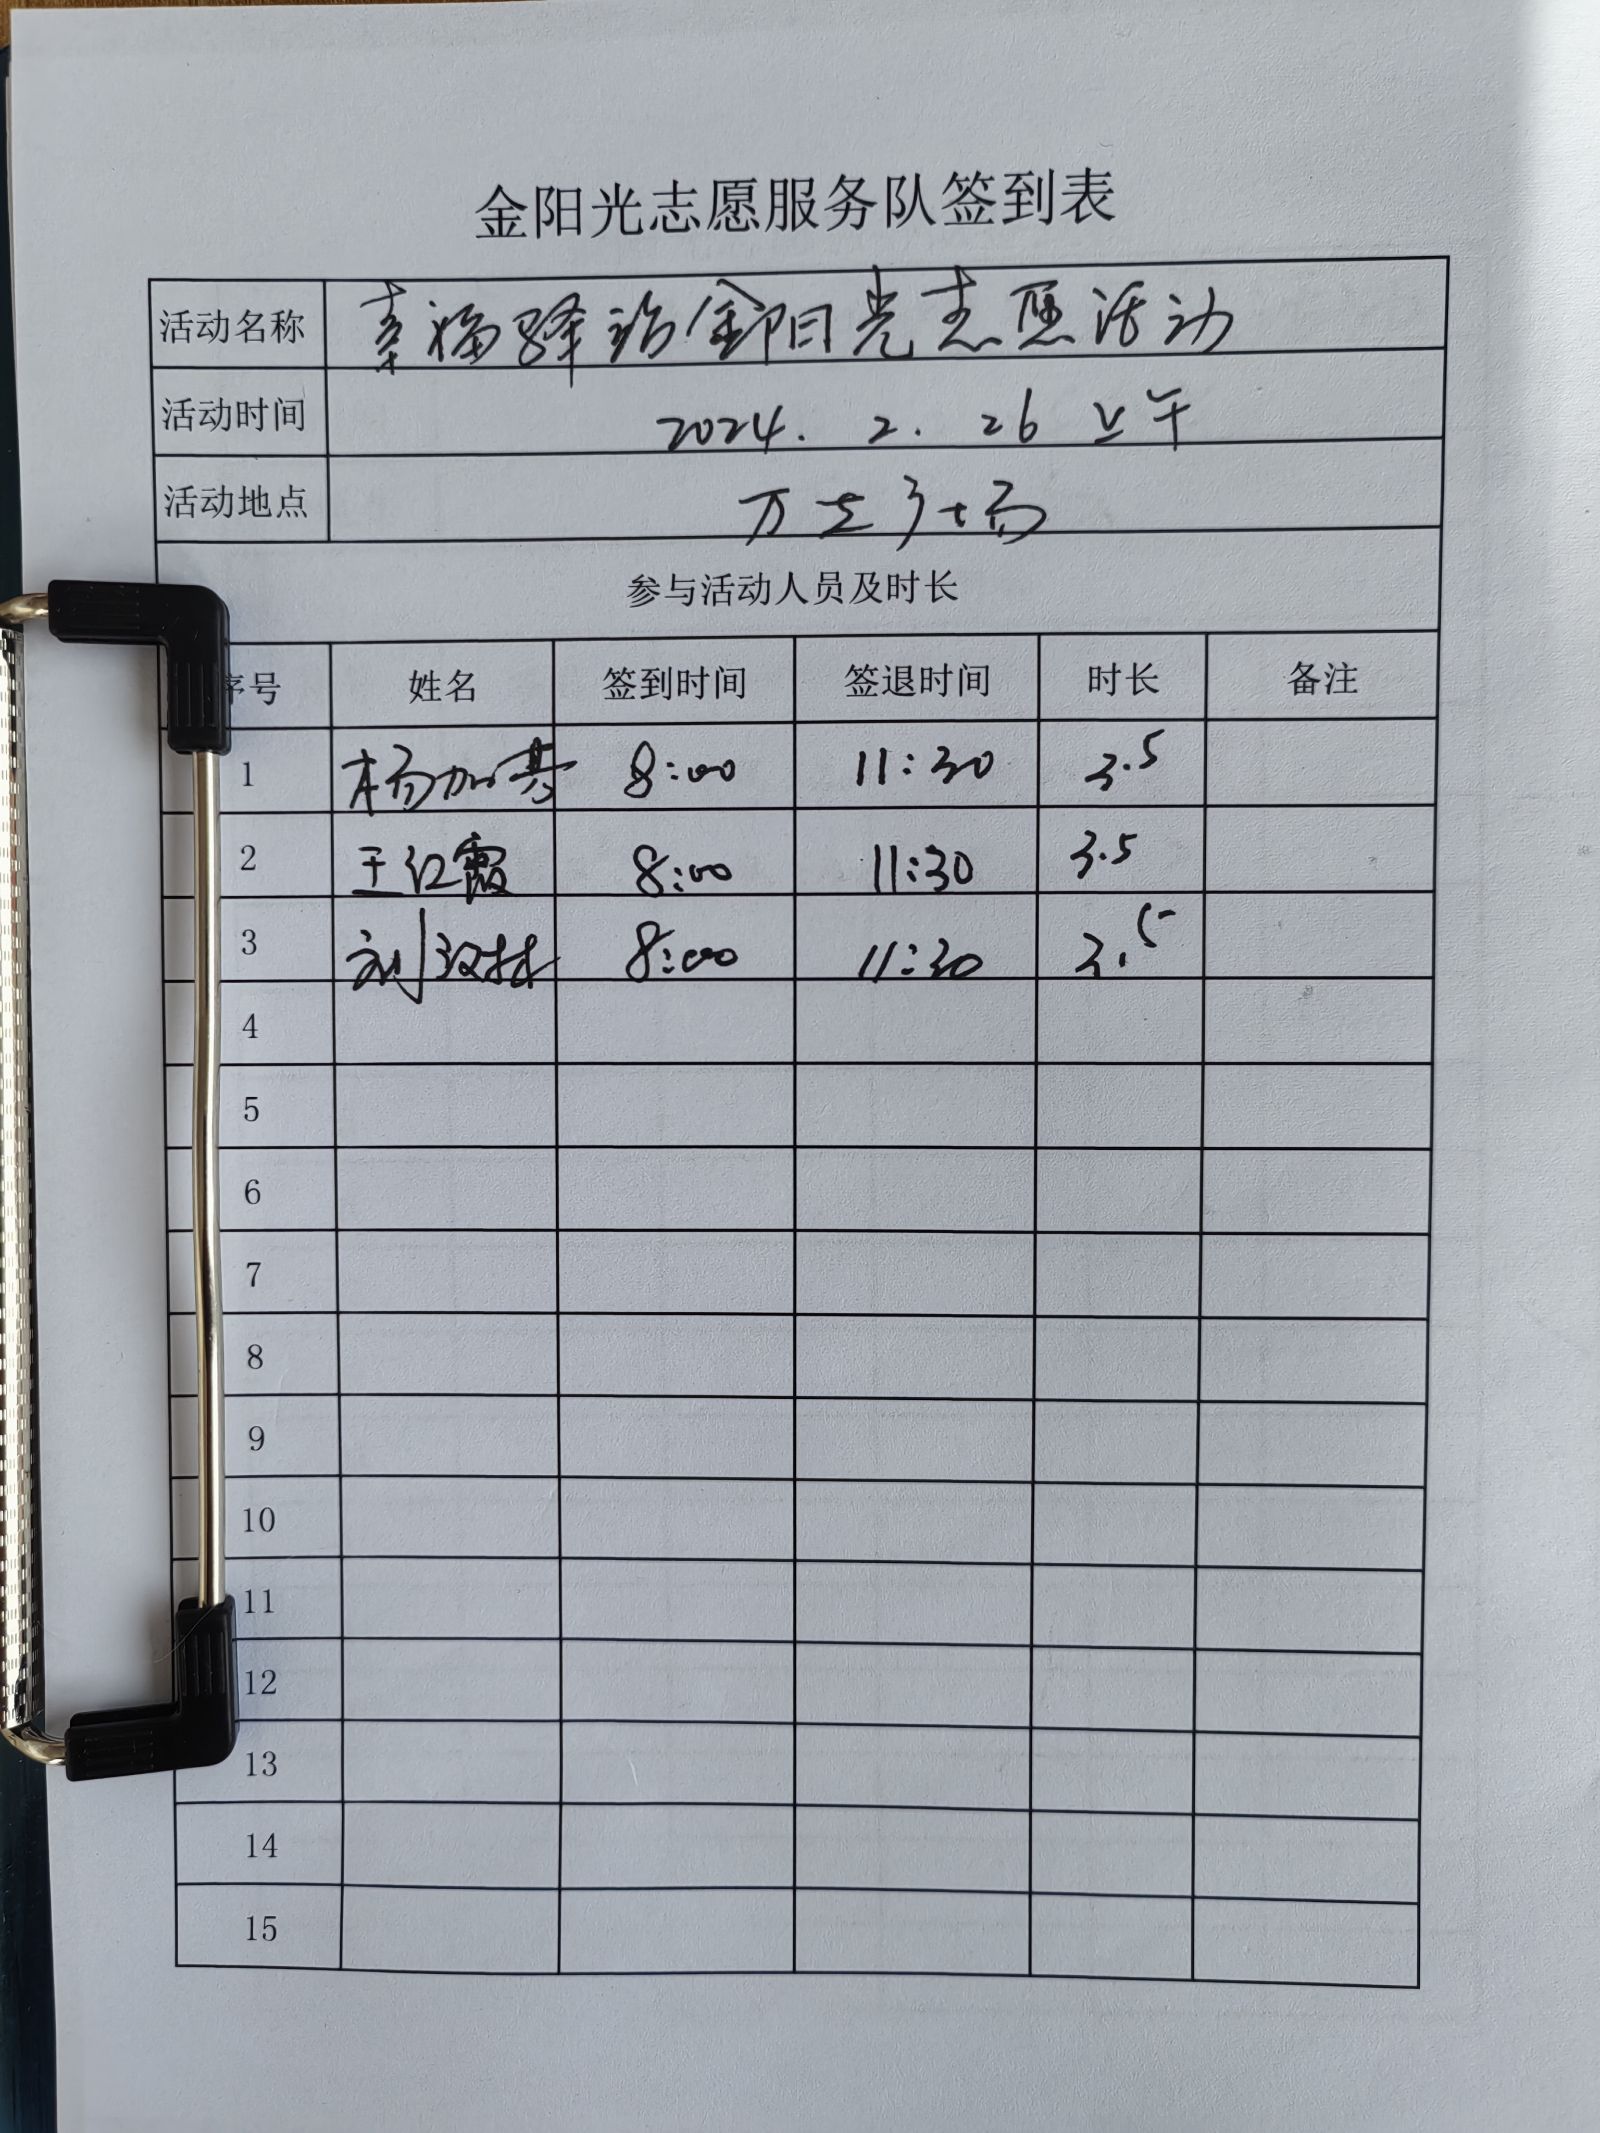 金阳光志愿服务队签到表
活动名称 幸福驿站金阳光志愿活动
活动时间 2024. 2. 26 上午
活动地点 万达广场
参与活动人员及时长
序号 姓名 签到时间 签退时间 时长 备注
1 杨加 8:00 11:30 3.5
2 王红霞 8:00 11:30 3.5
3 刘汉林 8:00 11:30 3.5
4
5
6
7
8
9
10
11
12
13
14
15